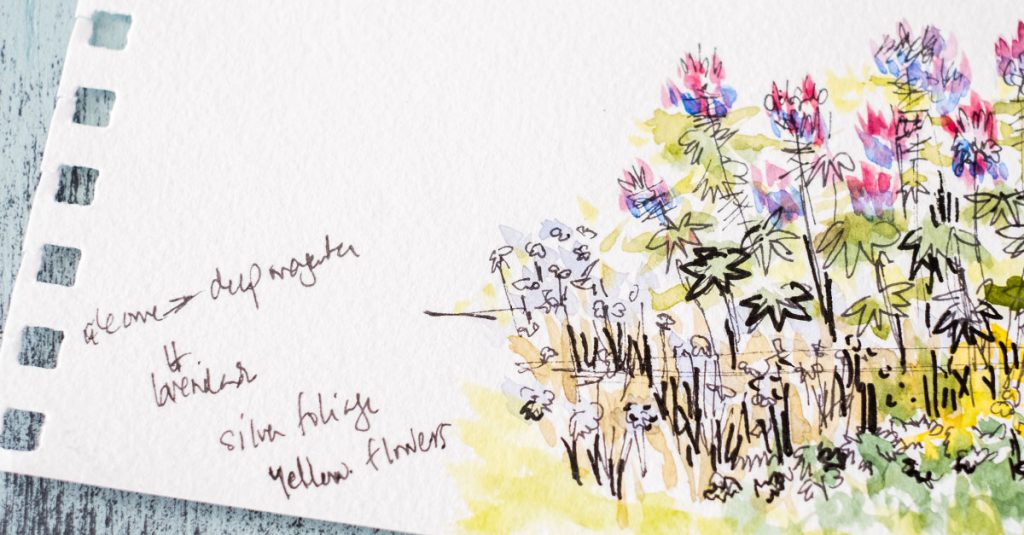 cleome > deep magenta
silver foliage
yellow flowers